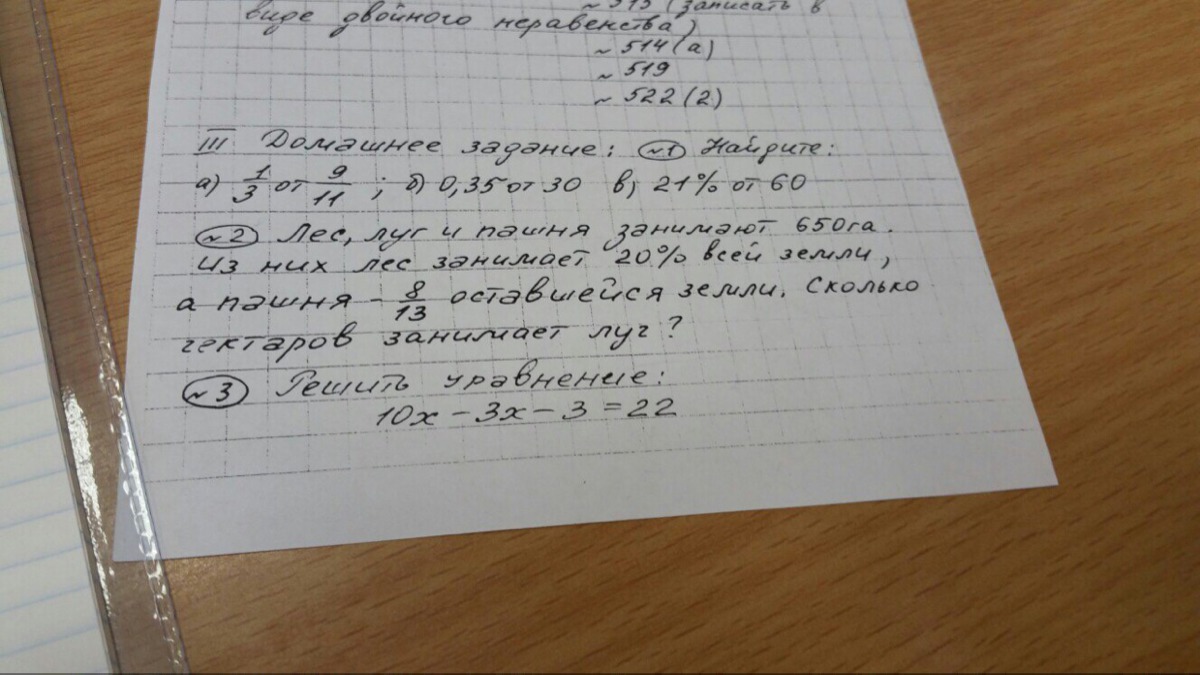 ~ 513 (записать в
виде двойного неравенства)
~ 514 (а)
~ 519
~ 522 (2)
III Домашнее задание: ~1 Найдите:
а) 1/3 от 9/11 ; б) 0,35 от 30 в) 21% от 60
~2 Лес, луг и пашня занимают 650га.
Из них лес занимает 20% всей земли,
а пашня - 8/13 оставшейся земли. Сколько
гектаров занимает луг?
~3 Решить уравнение:
10x - 3x - 3 = 22